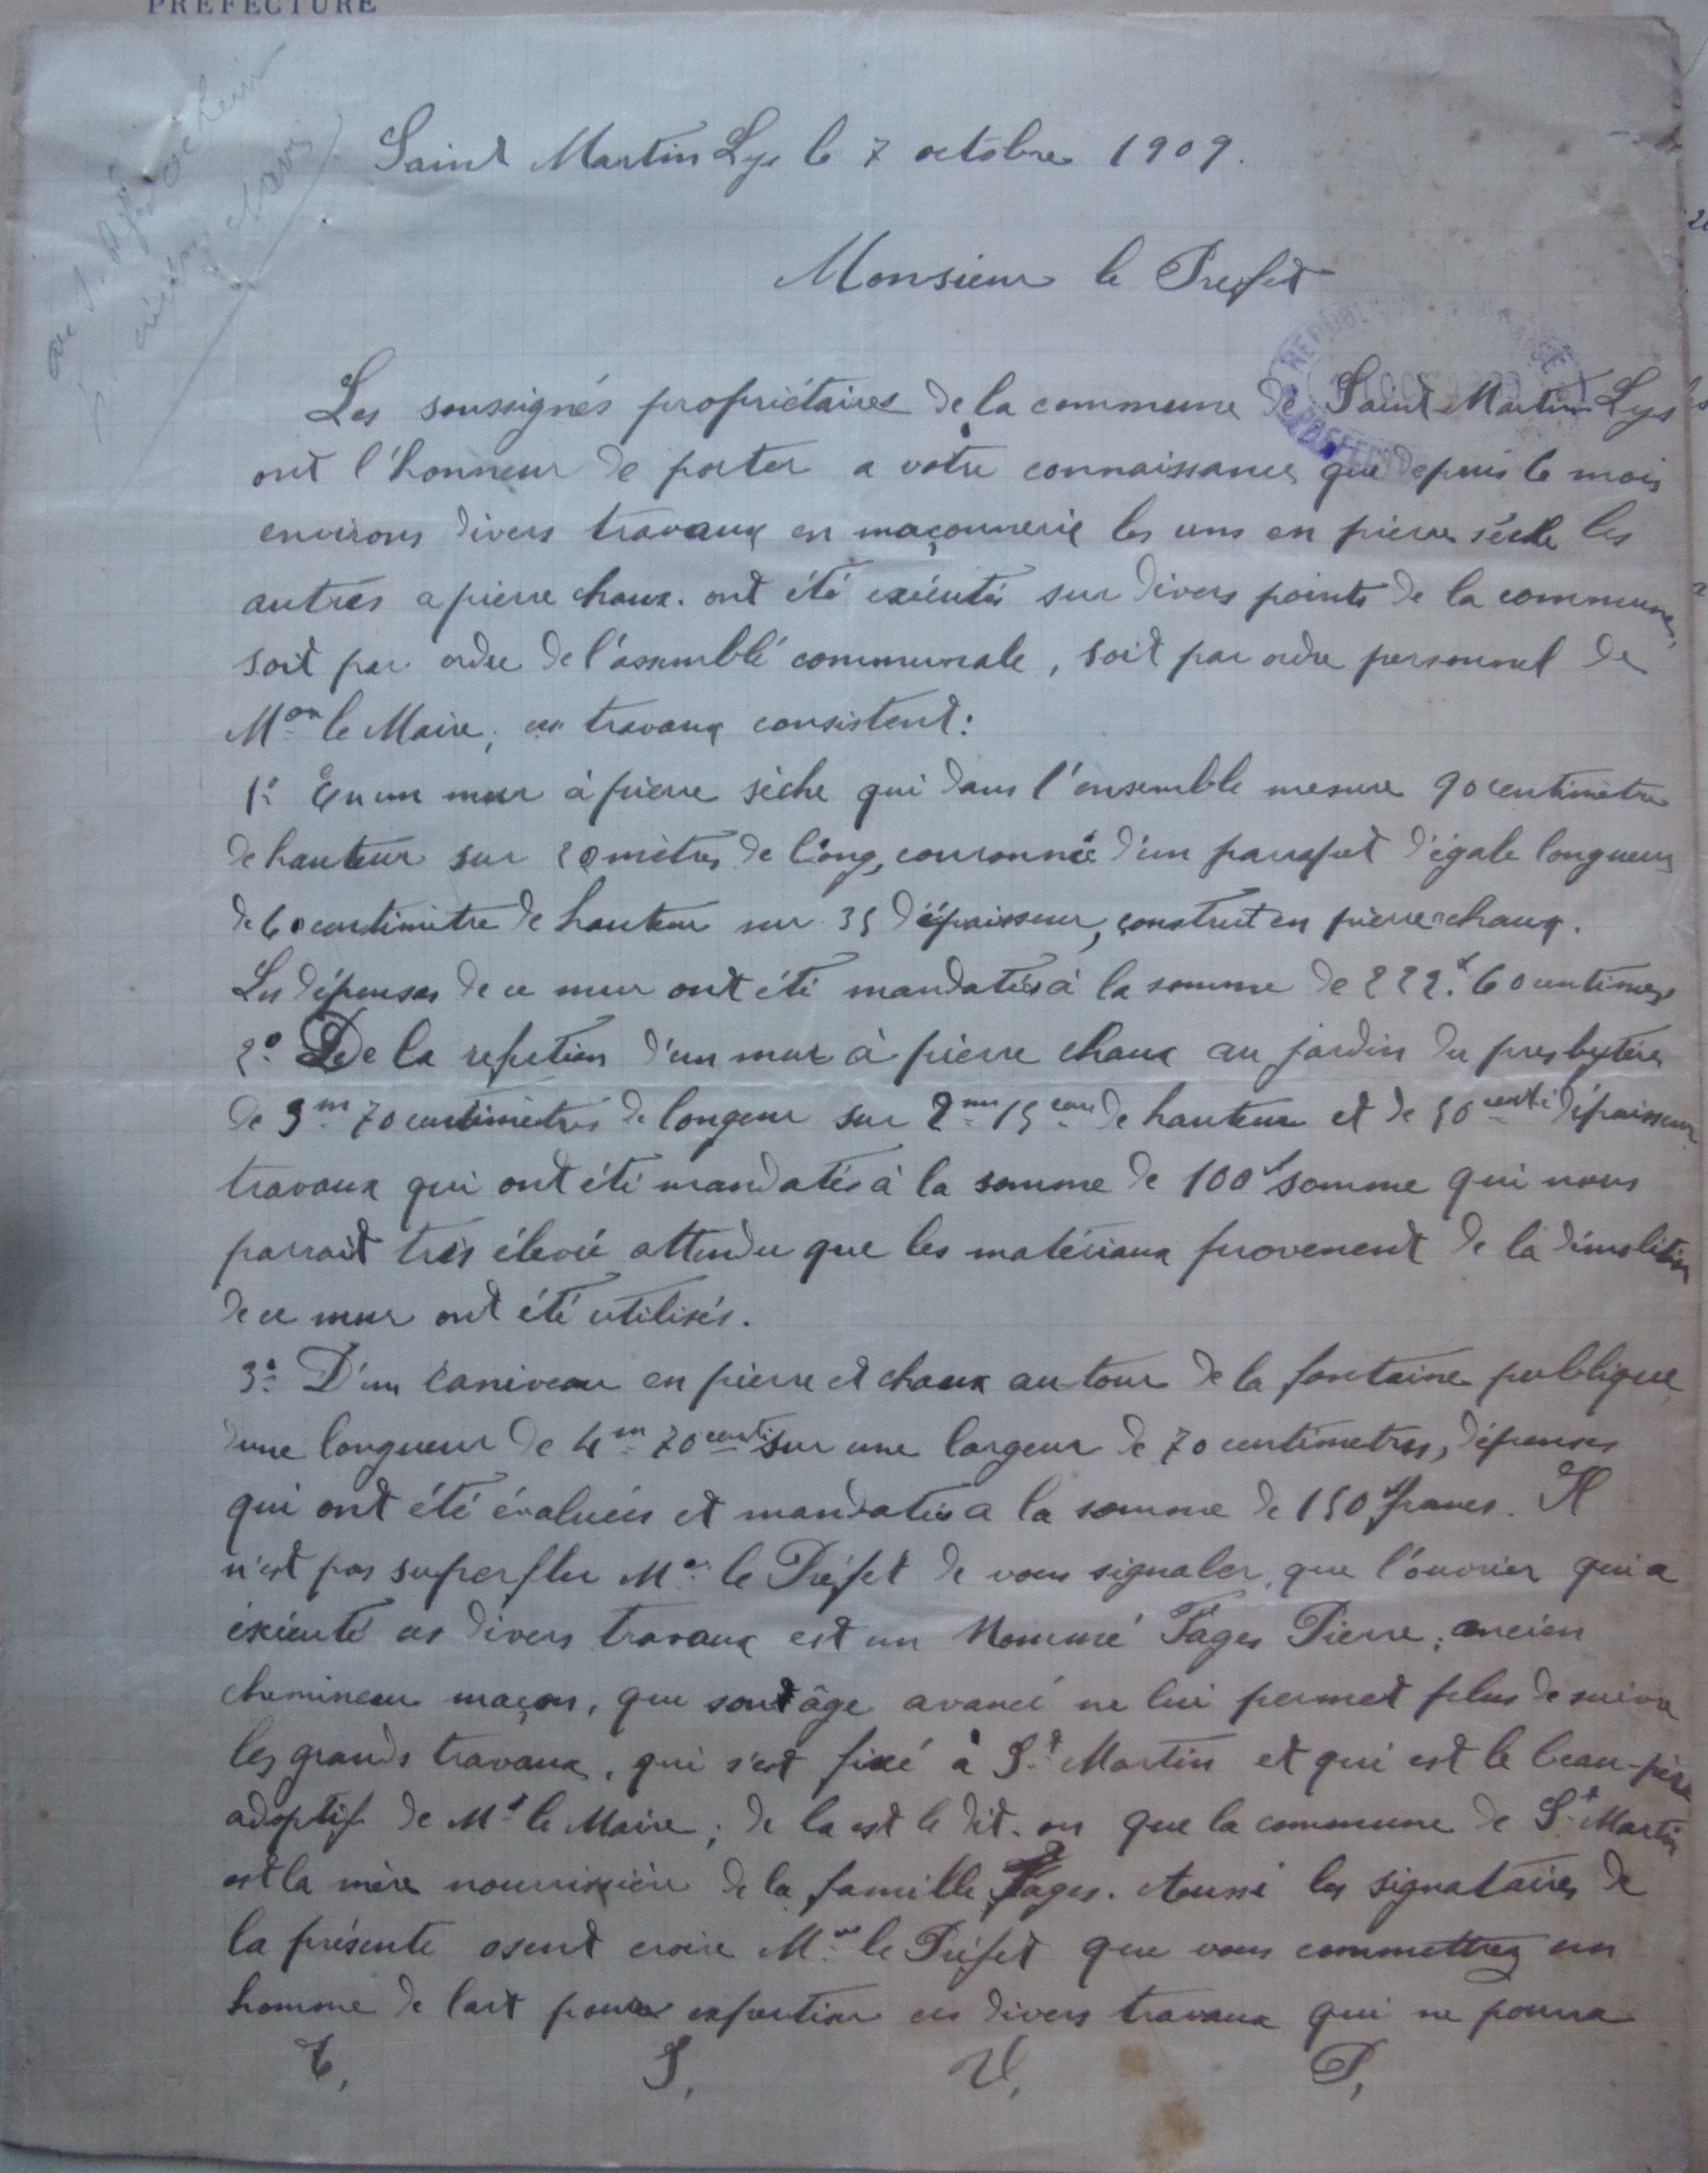 PREFECTURE
Saint Martin Lys le 7 octobre 1909.
Monsieur le Prefet
Les soussignés propriétaires de la commune de Saint Martin Lys
ont l'honneur de porter a votre connaissance que depuis 6 mois
environs divers travaux en maçonnerie les uns en pierre séche les
autres a pierre chaux. ont été exécutés sur divers points de la commune,
soit par ordre de l'assemblé communale, soit par ordre personnel de
Mon le Maire, ces travaux consistent:
1º En un mur à pierre sèche qui dans l'ensemble mesure 90 centimètre
de hauteur sur 20 mètres de long, couronnée d'un parrapet d'égale longueur
de 60 centimètre de hauteur sur 35 d'épaisseur, construit en pierre chaux.
Les dépenses de ce mur ont été mandatés à la somme de 222f. 60 centimes
2º De la refection d'un mur à pierre chaux au jardin du presbytère
de 3m 70 centimètres de longeur sur 2m 15 cen de hauteur et de 50 centi d'épaisseur
travaux qui ont été mandatés à la somme de 100f somme qui nous
parrait très élevée attendu que les matériaux provenent de la démolition
de ce mur ont été utilisés.
3º D'un caniveau en pierre et chaux autour de la fontaine publique
d'une longueur de 4m 70 centi sur une largeur de 70 centimetres, dépenses
qui ont été évaluées et mandatées a la somme de 150 francs. Il
n'est pas superflu Mr le Préfet de vous signaler, que l'ouvrier qui a
éxécuté ces divers travaux est un Nommé Fages Pierre, ancien
chemineau maçon, que sont âge avancé ne lui permet plus de suivre
les grands travaux, qui s'est fixé à St Martin et qui est le beau-père
adoptif de Mr le Maire; de la est le dit-on que la commune de St Martin
est la mère nourricière de la famille Fages. Aussi les signataires de
la présente osent croire Mr le Préfet que vous commettrez un
homme de lart pour expertiser ces divers travaux qui ne pourra
T, S, V, P,